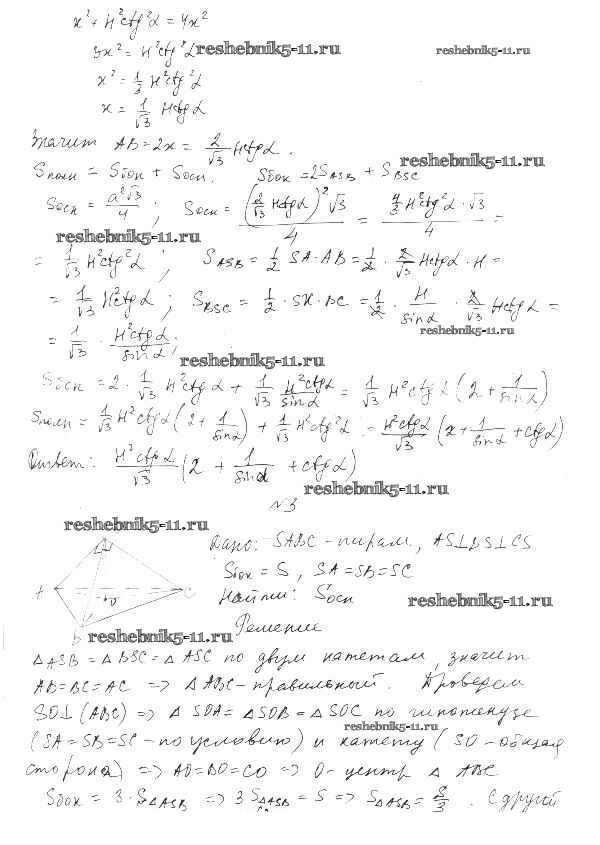 x² + H²ctg²α = 4x²
3x² = H²ctg²α reshebnik5-11.ru reshebnik5-11.ru
x² = 1/3 H²ctg²α
x = 1/√3 Hctgα
Значит AB = 2x = 2/√3 Hctgα.
reshebnik5-11.ru
Sполн = Sбок + Sосн. Sбок = 2S_ASB + S_BSC
Sосн = a²√3/4; Sосн = (2/√3 Hctgα)²√3/4 = 4/3 H²ctg²α·√3/4 =
reshebnik5-11.ru
= 1/√3 H²ctg²α; S_ASB = 1/2 SA·AB = 1/2 · 2/√3 Hctgα · H =
= 1/√3 H²ctgα; S_BSC = 1/2 · SK · BC = 1/2 · H/sinα · 2/√3 Hctgα =
reshebnik5-11.ru
= 1/√3 · H²ctgα/sinα;
reshebnik5-11.ru
Sбок = 2 · 1/√3 H²ctgα + 1/√3 H²ctgα/sinα = 1/√3 H²ctgα (2 + 1/sinα)
Sполн = 1/√3 H²ctgα (2 + 1/sinα) + 1/√3 H²ctg²α = H²ctgα/√3 (2 + 1/sinα + ctgα)
Ответ: H²ctgα/√3 (2 + 1/sinα + ctgα)
reshebnik5-11.ru
№3
reshebnik5-11.ru
Дано: SABC - пирам, AS⊥BS⊥CS
Sбок = S, SA = SB = SC
A O C
Найти: Sосн
reshebnik5-11.ru
B reshebnik5-11.ru
Решение
△ASB = △BSC = △ASC по двум катетам, значит
AB = BC = AC => △ABC - правильный. Проведем
SO⊥(ABC) => △SOA = △SOB = △SOC по гипотенузе
reshebnik5-11.ru
(SA = SB = SC - по условию) и катету (SO - общая
сторона) => AO = BO = CO => O - центр △ABC
Sбок = 3·S△ASB => 3S△ASB = S => S△ASB = S/3. С другой